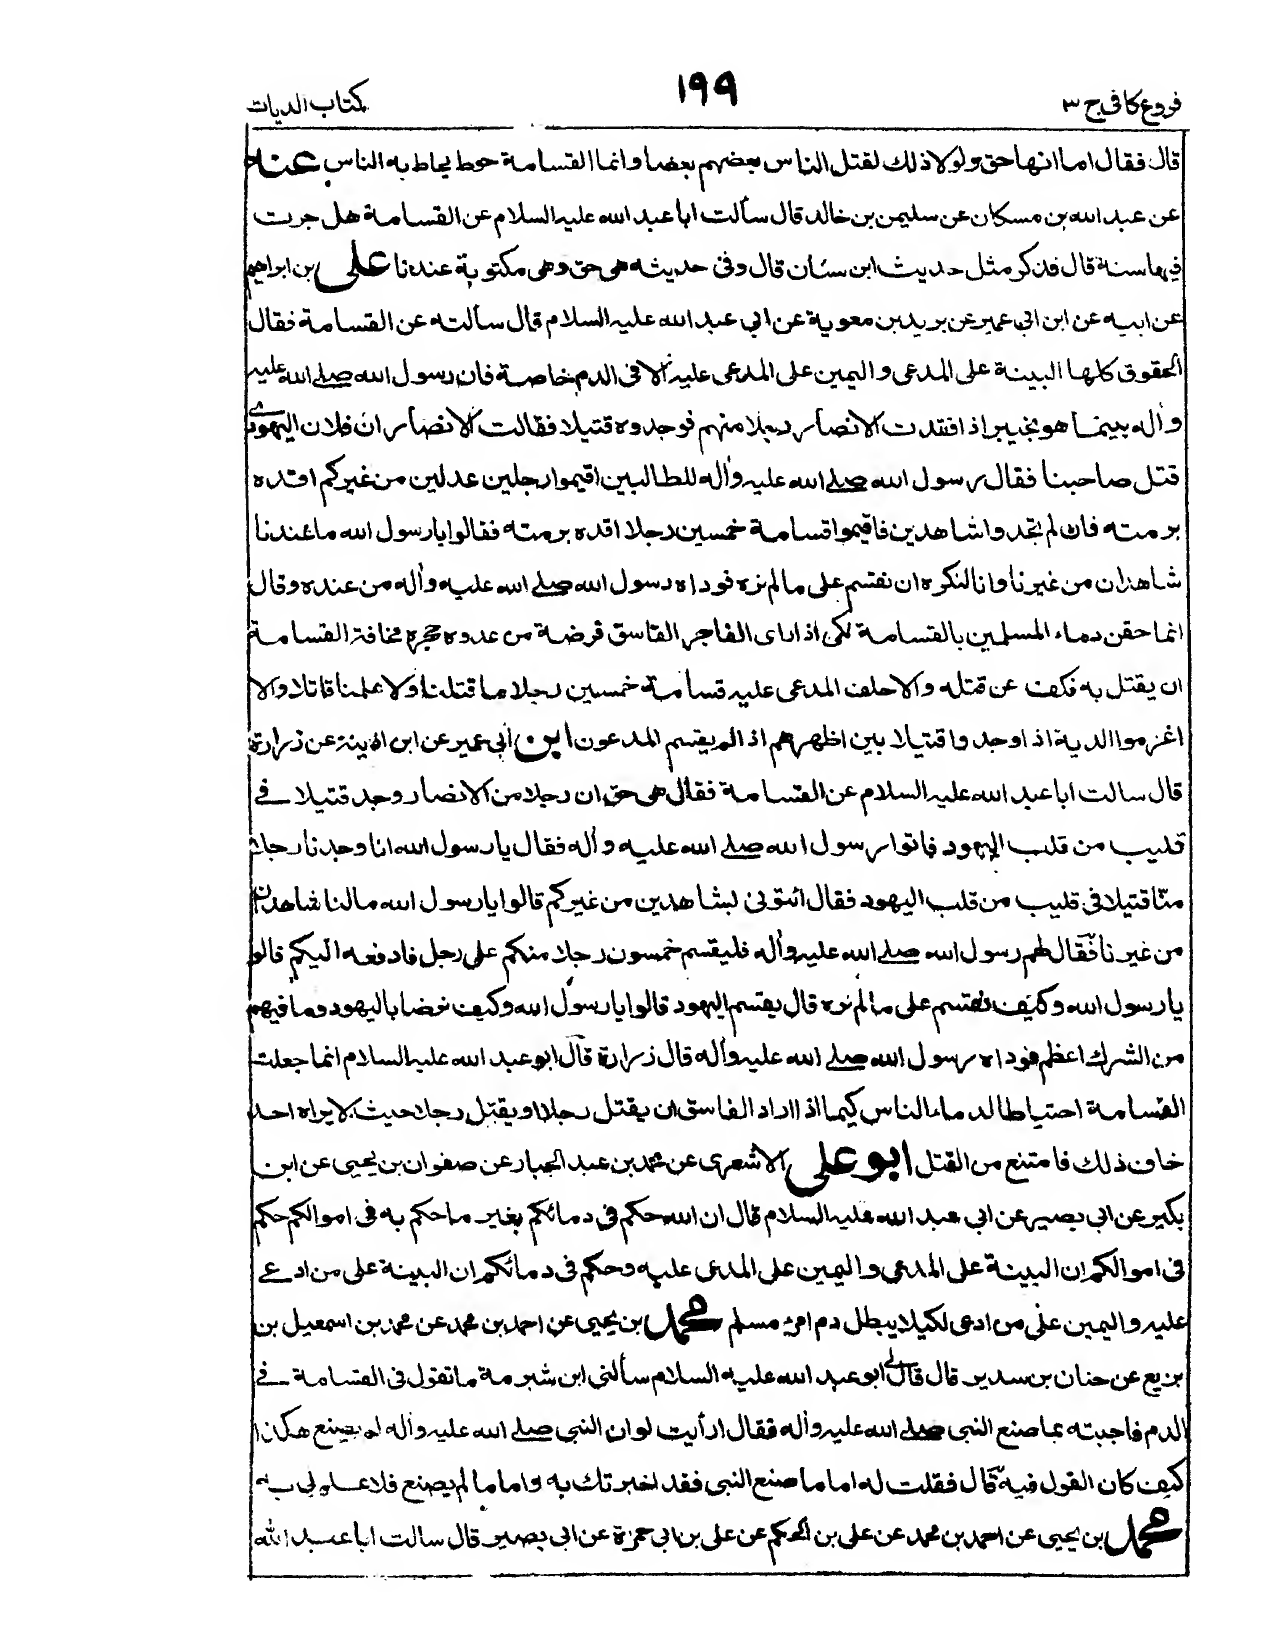 فروع كافى ج ٣
١٩٩
كتاب الديات
قال فقال اما انها حق ولولا ذلك لقتل الناس بعضهم بعضا وانما القسامة حوط يحاط به الناس عنه
عن عبد الله بن مسكان عن سليمن بن خالد قال سألت ابا عبد الله عليه السلام عن القسامة هل جرت
فيها سنة قال فذكر مثل حديث ابن سنان قال وفى حديثه هى حق وهى مكتوبة عندنا على بن ابراهيم
عن ابيه عن ابن ابى عمير عن بريد بن معوية عن ابي عبد الله عليه السلام قال سألته عن القسامة فقال
الحقوق كلها البينة على المدعى واليمين على المدعى عليه الا فى الدم خاصة فان رسول الله صلى الله عليه
وأله بينما هو بخيبر اذ افقدت الانصار رجلا منهم فوجدوه قتيلا فقالت الانصار ان فلان اليهودى
قتل صاحبنا فقال رسول الله صلى الله عليه وأله للطالبين اقيموا رجلين عدلين من غيركم اقده
برمته فان لم تجدوا شاهدين فاقيموا قسامة خمسين رجلا اقده برمته فقالوا يا رسول الله ما عندنا
شاهدان من غيرنا وانا لنكره ان نقسم على ما لم نره فوداه رسول الله صلى الله عليه وأله من عنده وقال
انما حقن دماء المسلمين بالقسامة لكى اذا راى الفاجر الفاسق فرضة من عدوه حجره مخافة القسامة
ان يقتل به فكف عن قتله والا حلف المدعى عليه قسامة خمسين رجلا ما قتلنا ولا علمنا قاتلا والا
اغرموا الدية اذا وجدوا قتيلا بين اظهرهم اذا لم يقسم المدعون ابن ابى عمير عن ابن اذينة عن زرارة
قال سالت ابا عبد الله عليه السلام عن القسامة فقال هى حق ان رجلا من الانصار وجد قتيلا فى
قليب من قلب اليهود فاتوا رسول الله صلى الله عليه وأله فقال يا رسول الله انا وجدنا رجلا
منا قتيلا فى قليب من قلب اليهود فقال ائتونى بشاهدين من غيركم قالوا يا رسول الله ما لنا شاهدان
من غيرنا فقال لهم رسول الله صلى الله عليه وأله فليقسم خمسون رجلا منكم على رجل فادفعه اليكم قالوا
يا رسول الله وكيف نقسم على ما لم نره قال يقسم اليهود قالوا يا رسول الله وكيف نرضا باليهود وما فيهم
من الشرك اعظم فوداه رسول الله صلى الله عليه وأله قال زرارة قال ابو عبد الله عليه السلام انما جعلت
القسامة احتياطا لدماء الناس كيما اذا اراد الفاسق ان يقتل رجلا او يقتل رجلا حيث لا يراه احد
خاف ذلك فامتنع من القتل ابو على الاشعرى عن محمد بن عبد الجبار عن صفوان بن يحيى عن ابن
بكير عن ابى بصير عن ابى عبد الله عليه السلام قال ان الله حكم فى دمائكم بغير ما حكم به فى اموالكم حكم
فى اموالكم ان البينة على المدعى واليمين على المدعى عليه وحكم فى دمائكم ان البينة على من ادعى
عليه واليمين على من ادعى لكيلا يبطل دم امرء مسلم محمد بن يحيى عن احمد بن محمد عن محمد بن اسمعيل بن
بزيع عن حنان بن سدير قال قال لى ابو عبد الله عليه السلام سألنى ابن شبرمة ما تقول فى القسامة فى
الدم فاجبته بما صنع النبى صلى الله عليه وأله فقال ارأيت لو ان النبى صلى الله عليه وأله لم يصنع هكذا
كيف كان القول فيه قال فقلت له اما ما صنع النبى فقد اخبرتك به واما ما لم يصنع فلا علم لى به
محمد بن يحيى عن احمد بن محمد عن على بن الحكم عن على بن ابى حمزة عن ابى بصير قال سالت ابا عبد الله